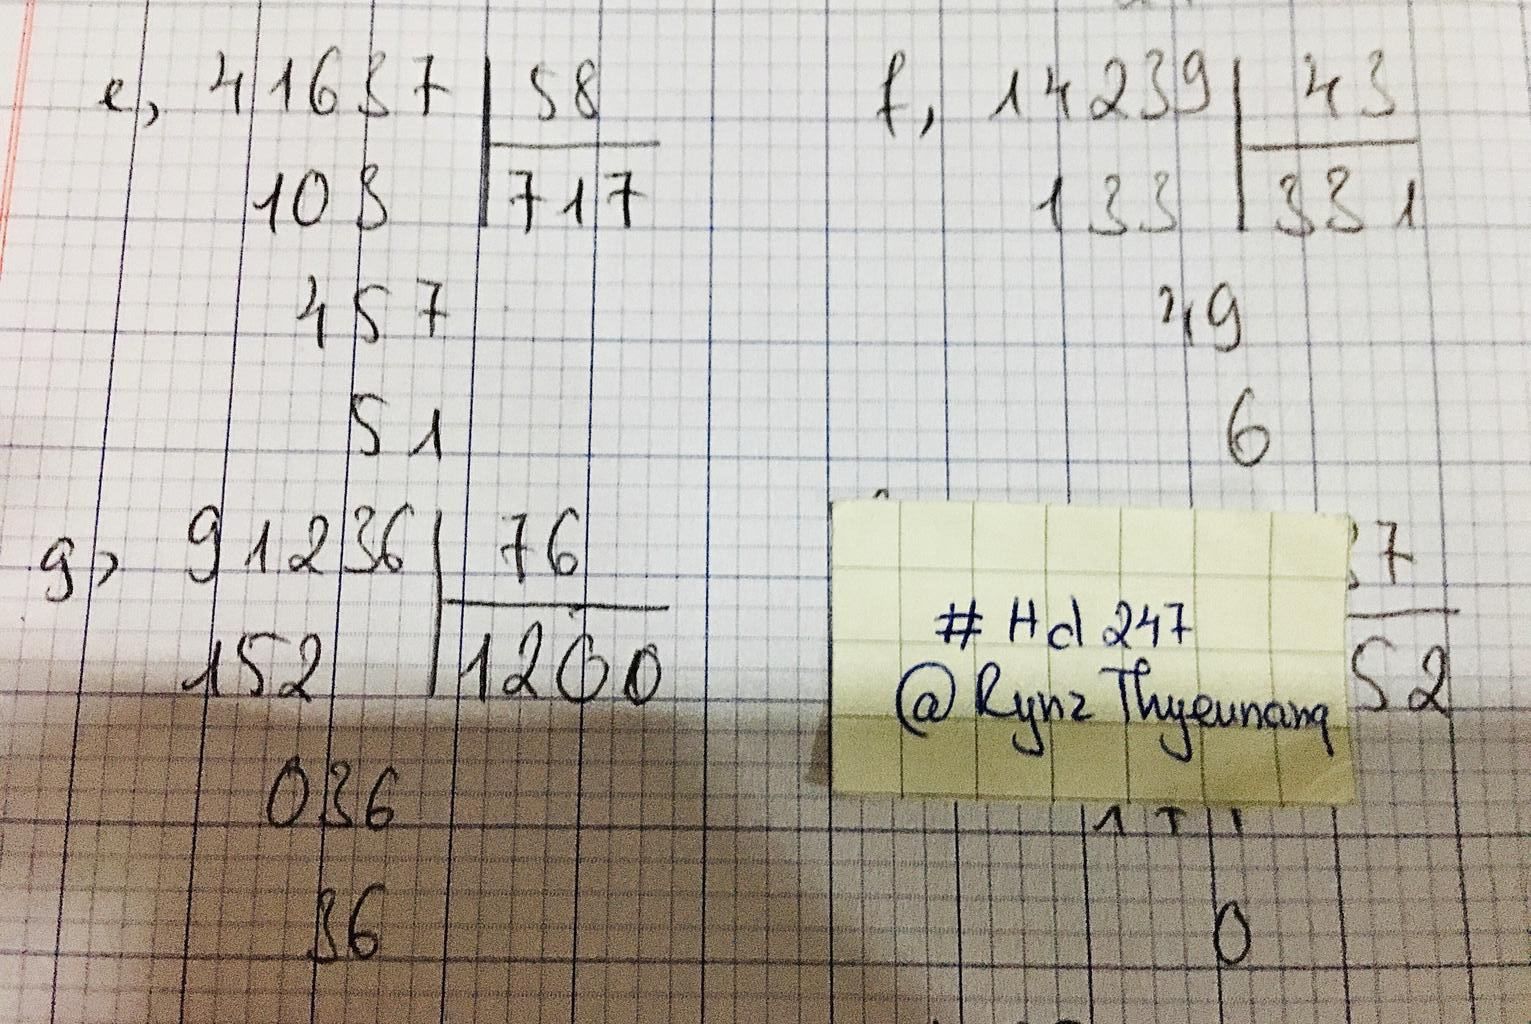 e, 41637 58
103 717
457
51
f, 14239 43
133 331
49
6
g, 91236 76
152 1200
036
36
37
52
0
# Hd 247
@ Rynz Thyeunang